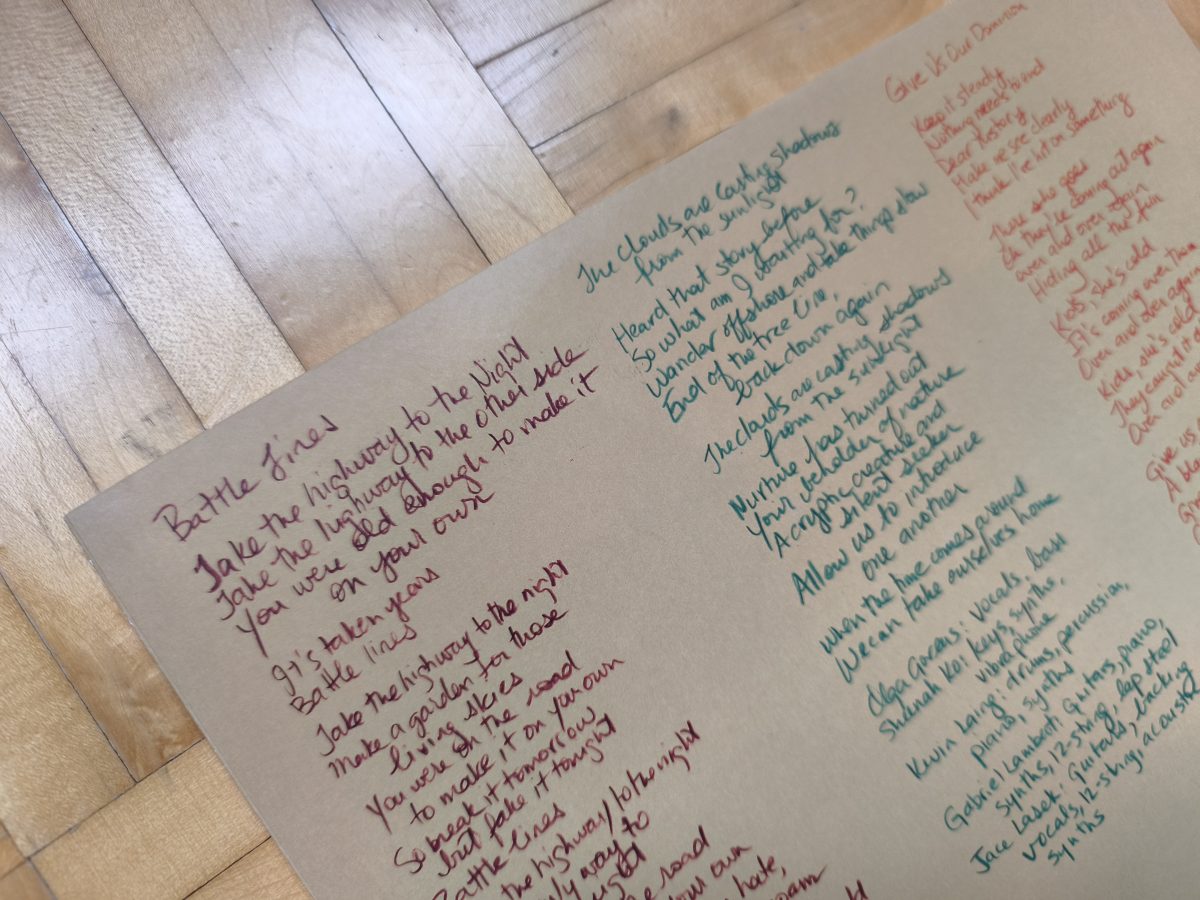 Battle Lines
Take the highway to the Night
Take the highway to the other side
You were old enough to make it
on your own
It's taken years
Battle lines
Take the highway to the night
Make a garden for those
living skies
You were on the road
to make it on your own
So break it tomorrow
but fake it tonight
Battle lines
the highway to the night
way to
the road
own
hate,
The Clouds are Casting Shadows
from the sunlight
Heard that story before
So what am I waiting for?
Wander offshore and take things slow
End of the tree line,
back down again
The clouds are casting shadows
from the sunlight
Nurture has turned out
Your beholder of nature
A cryptic creature and
silent seeker
Allow us to introduce
one another
When the time comes around
We can take ourselves home
Olga Goreas: vocals, bass
Sheenah Koi: Keys, synths,
vibraphone
Kevin Laing: drums, percussion,
piano, synths
Gabriel Lambert: Guitars, piano,
synths, 12-string, lap steel
Jace Lasek: Guitars, backing
vocals, 12-string, acoustic
synths
Give Us Our Dominion
Keep it steady
Nothing needs to end
Dear history
Make me see clearly
I think I've hit on something
There she goes
Oh they're coming out again
Over and over again
Hiding all the fun
Kids, she's cold
It's coming over
Over and over again
Kids, she's cold
They caught it
Over and over
Give us
A